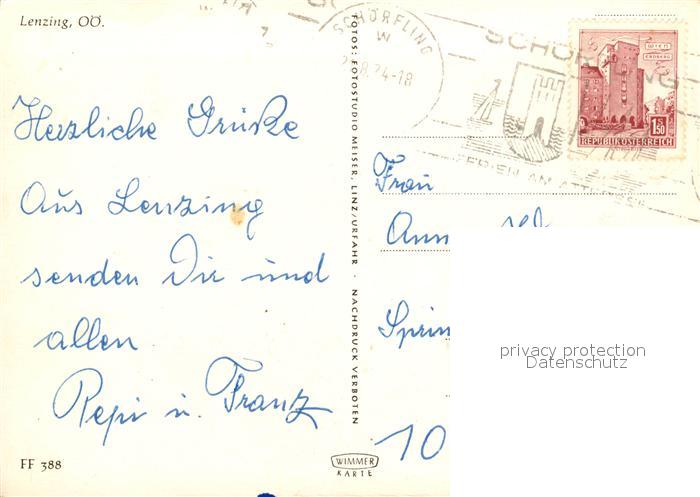 Lenzing, OÖ.
Herzliche Grüße
Aus Lenzing
senden Dir und
allen
Pepi u. Franz
FF 388
FOTOS: FOTOSTUDIO MEISER, LINZ/URFAHR · NACHDRUCK VERBOTEN
WIMMER
KARTE
SCHÖRFLING
8.74-18
SCHÖRFLING
FERIEN AM ATTERSEE
WIEN
ERDBERG
1.50
REPUBLIK ÖSTERREICH
Frau
Ann
Sprin
10
privacy protection
Datenschutz